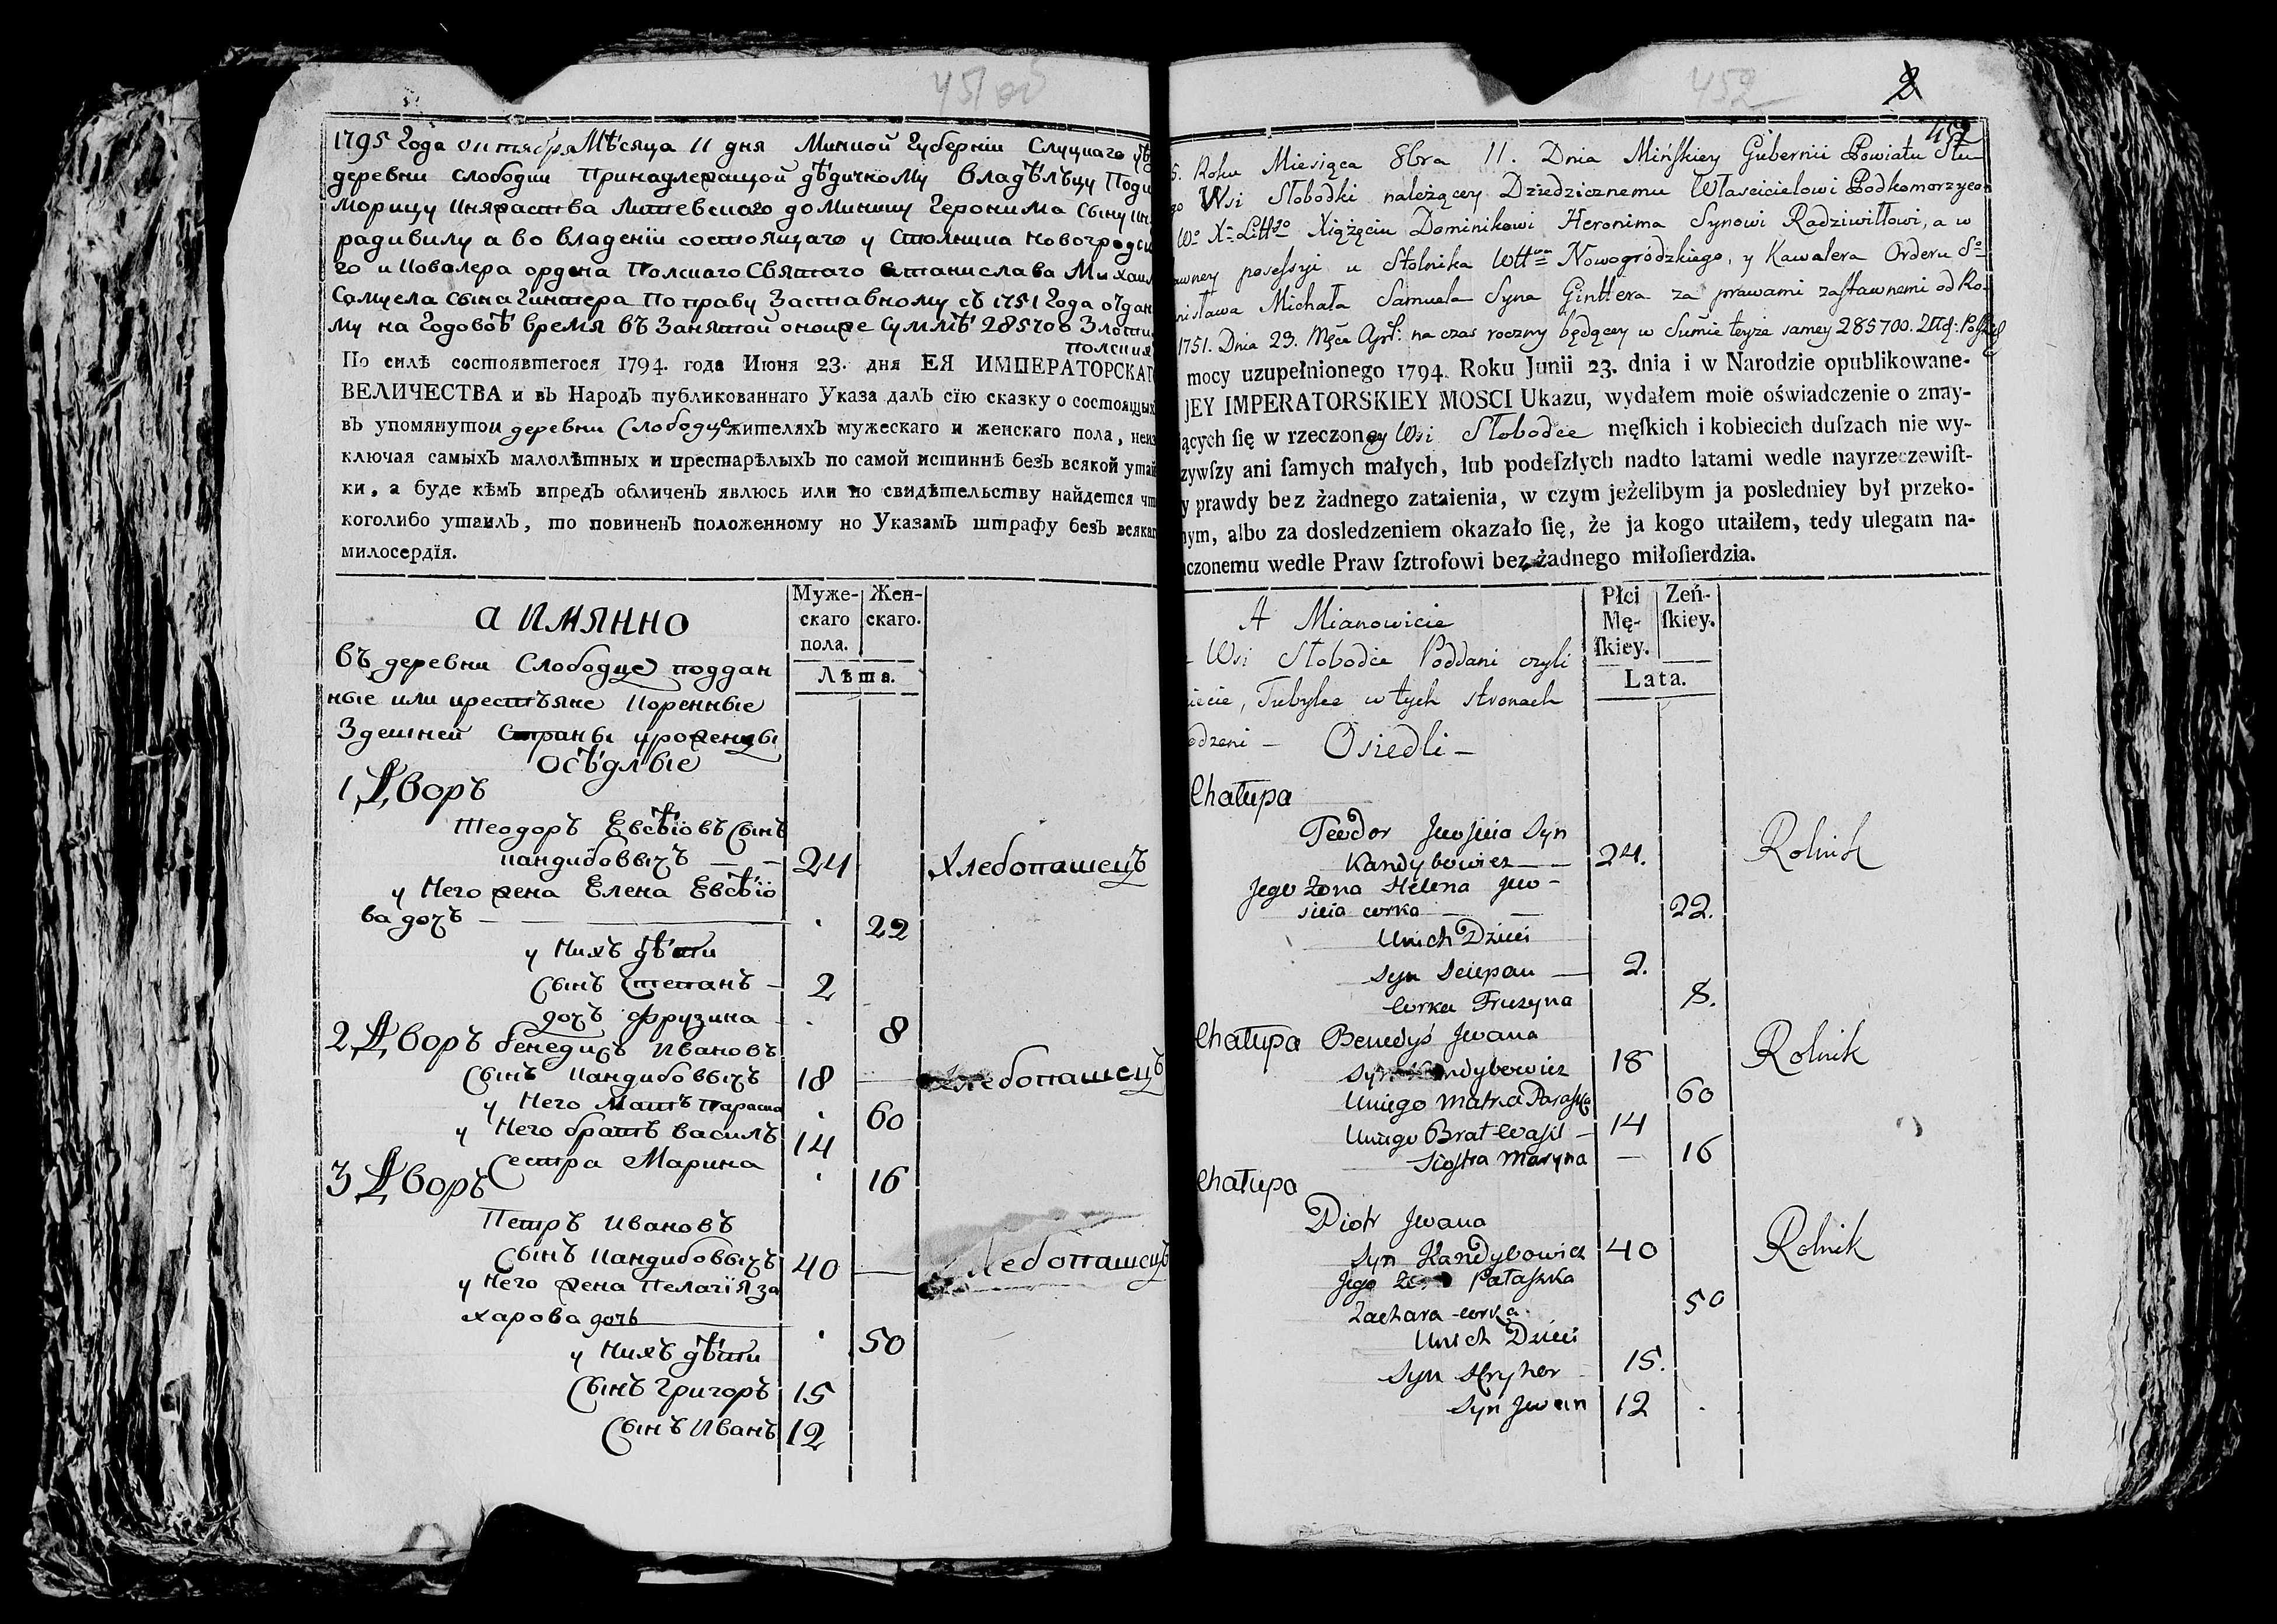 451 об
1795 Года октября Мѣсяца 11 дня Минской Губерніи Слуцкаго уѣ
деревни слободки Принадлежащой дѣдичному Владѣлъцу Подк
морицу Княжества Литевскаго доминику Геронима сыну кн
радивилу а во владеніи состоящаго у Столника Новогродск
го и Ковалера ордена Полскаго Святаго Станислава Михаил
Самуела сына Гинтера По праву Заставному съ 1751 Года отдан
му на Годовоѣ время въ Занятой оноиже Суммѣ 285700 Злоти
полских
По силѣ состоявшегося 1794. года Июня 23. дня ЕЯ ИМПЕРАТОРСКАГ
ВЕЛИЧЕСТВА и въ Народъ публикованнаго Указа далъ сїю сказку о состоящих
въ упомянутои деревни Слободце жителяхъ мужескаго и женскаго пола, неиз
ключая самыхъ малолѣтных и престарѣлыхъ по самой истиннѣ безъ всякой утай
ки, а буде кѣмъ впредъ обличенъ явлюсь или по свидѣтельству найдется чт
коголибо утаилъ, то повиненъ положенному по Указамъ штрафу безъ всякаг
милосердїя.
а имянно
Муже- Жен-
скаго скаго.
пола.
Лѣта.
въ деревни Слободце поддан
ные или крестъяне Коренные
Здешней Страны уроженцы
осѣдлые
1 Дворъ
Теодоръ Евсѣіовъ Сынъ
кандибовычъ — — 24 Хлебопашецъ
у Него жена Елена Евсѣіо
ва дочъ — 22
у Нихъ дѣти
Сынъ Степанъ - 2
дочъ Фрузина 8
2 Дворъ бенедиктъ Ивановъ
Сынъ Кандибовычъ 18 Хлебопашецъ
у Него Матъ Параска 60
у Него братъ Василъ 14
Сестра Марина 16
3 Дворъ
Петръ Ивановъ
Сынъ Кандибовычъ 40 Хлебопашецъ
у Него жена Пелагія за
харова дочъ 50
у Нихъ дѣти
Сынъ Григоръ 15
Сынъ Иванъ 12
452
2
452
5. Roku Miesiąca 8bra 11. Dnia Mińskiey Gubernii Powiatu Słu
go Wsi Słobodki należącey Dziedzicznemu Własċicielowi Podkomorzyco
Wo Xa Littgo Xiążęciu Dominikowi Heronima Synowi Radziwiłłowi, a w
awney posessyi u Stolnika Wttwa Nowogródzkiego, y Kawalera Orderu So
nisława Michała Samuela Syna Ginttera za prawami zastawnemi od Ro-
1751. Dnia 23. Mca Apl: na czas roczny będącey w Sumie teyże samey 285700. Złch: Polskich
mocy uzupełnionego 1794. Roku Junii 23. dnia i w Narodzie opublikowane-
JEY IMPERATORSKIEY MOSCI Ukazu, wydałem moie oświadczenie o znay-
iących się w rzeczoney Wsi Słobodce męſkich i kobiecich duſzach nie wy-
zywſzy ani ſamych małych, lub podeſzłych nadto latami wedle nayrzeczewiſt-
y prawdy bez żadnego zataienia, w czym jeżelibym ja posledniey był przeko-
nym, albo za dosledzeniem okazało ſię, że ja kogo utaiłem, tedy ulegam na-
czonemu wedle Praw ſztrofowi bez żadnego miłoſierdzia.
A Mianowicie
Płci Zeń-
Mę- ſkiey.
ſkiey.
Lata.
Wsi Słobodce Poddani czyli
iecie, Tubylce w tych stronach
odzeni — Osiedli —
Chałupa
Teodor Jewsieia Syn
Kandybowicz — 24. Rolnik
Jego Żona Helena Jew-
sieia corka — 22.
U nich Dzieci
Syn Sciepan — 2.
Corka Fruzyna 8.
Chałupa Benedyś Jwana
Syn Kandybowicz 18 Rolnik
U niego Matka Paraska 60
U niego Brat Wasil — 14
Siostra Maryna — 16
Chałupa
Piotr Jwana
Syn Kandybowicz 40 Rolnik
Jego Żona Pałaszka
Zachara corka 50
U nich Dzieci
Syn Hryhor 15.
Syn Jwan 12